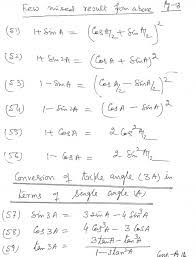 Few mixed result from above Pg-3
(51) 1+ SinA = (Cos A/2 + Sin A/2)²
(52) 1+ Sin2A = (CosA + SinA)²
(53) 1 - SinA = (Cos A/2 - Sin A/2)²
(54) 1 - Sin2A = (CosA - SinA)²
(55) 1+ CosA = 2 Cos² A/2
(56) 1 - CosA = 2 Sin² A/2
Conversion of triple angle (3A) in
terms of single angle (A)
(57) Sin3A = 3 SinA - 4 Sin³A
(58) Cos3A = 4 Cos³A - 3 CosA
(59) tan3A = 3tanA - tan³A / 1 - 3tan²A